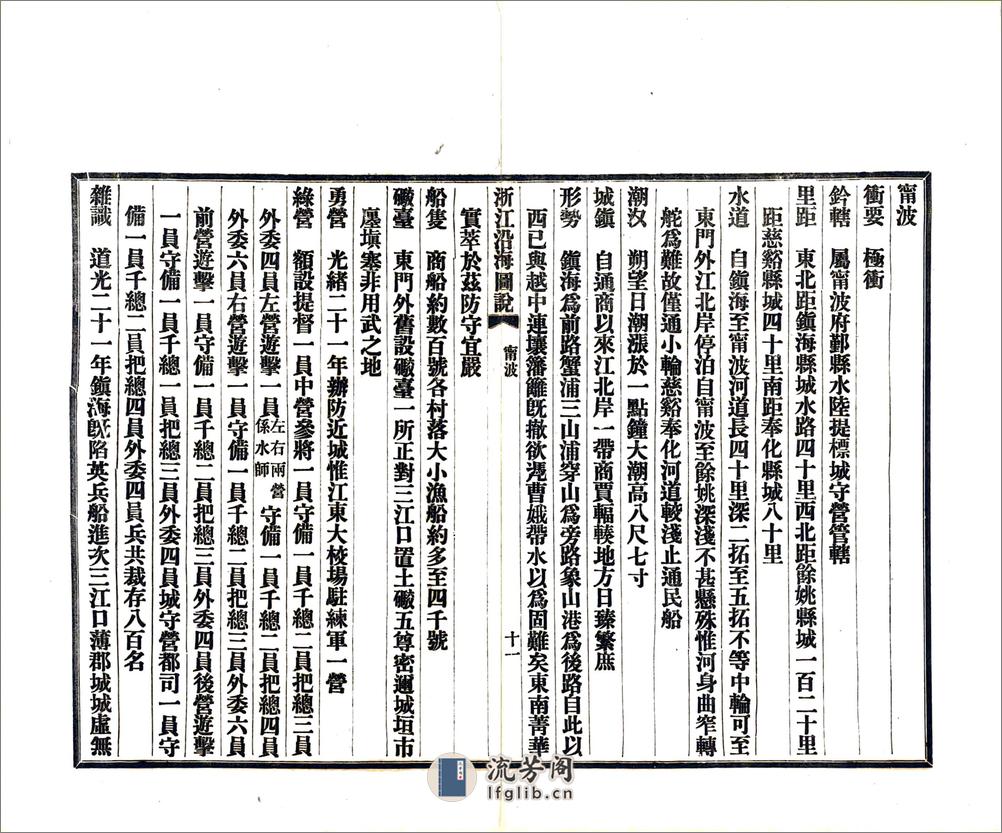 甯波
衝要　極衝
鈐轄　屬甯波府鄞縣水陸提標城守營管轄
里距　東北距鎭海縣城水路四十里西北距餘姚縣城一百二十里
距慈谿縣城四十里南距奉化縣城八十里
水道　自鎭海至甯波河道長四十里深二拓至五拓不等中輪可至
東門外江北岸停泊自甯波至餘姚深淺不甚懸殊惟河身曲窄轉
舵爲難故僅通小輪慈谿奉化河道較淺止通民船
潮汐　朔望日潮漲於一點鐘大潮高八尺七寸
城鎭　自通商以來江北岸一帶商賈輻輳地方日臻繁庶
形勢　鎭海爲前路蟹浦三山浦穿山爲旁路象山港爲後路自此以
西已與越中連壤藩籬旣撤欲凴曹娥帶水以爲固難矣東南菁華
浙江沿海圖說　甯波　十一
實萃於茲防守宜嚴
船隻　商船約數百號各村落大小漁船約多至四千號
礮臺　東門外舊設礮臺一所正對三江口置土礮五尊密邇城垣市
廛塡塞非用武之地
勇營　光緒二十一年辦防近城惟江東大校場駐練軍一營
綠營　額設提督一員中營參將一員守備一員千總二員把總三員
外委四員左營遊擊一員左右兩營係水師守備一員千總二員把總四員
外委六員右營遊擊一員守備一員千總二員把總三員外委六員
前營遊擊一員守備一員千總二員把總三員外委四員後營遊擊
一員守備一員千總一員把總三員外委四員城守營都司一員守
備一員千總二員把總四員外委四員兵共裁存八百名
雜識　道光二十一年鎭海旣陷英兵船進次三江口薄郡城城虛無
流芳阁
lfglib.cn